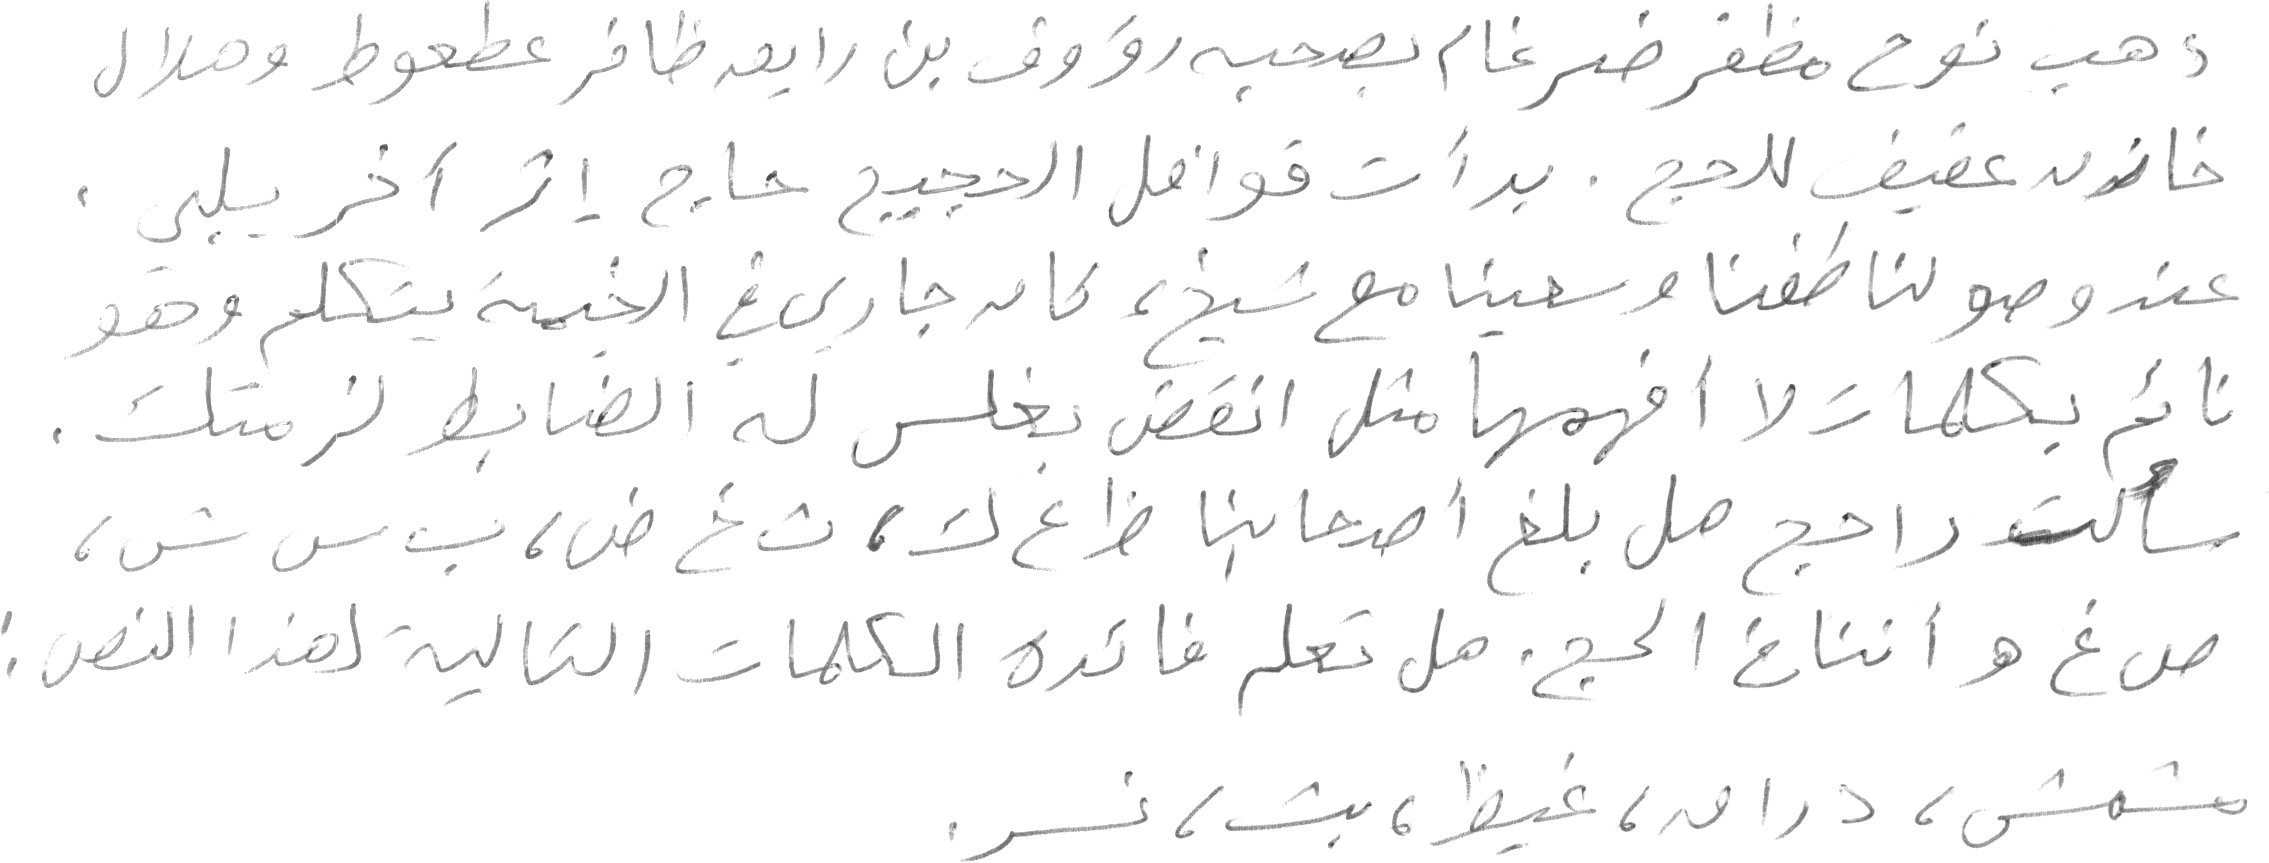 ذهب نوح مظفر ضرغام بصحبه رؤوف بن رايعه ظافر عطعوط وهلال
خاندن عفيف للحج. بدأت قوافل الحجيج حاج إثر آخر يلبي.
عند وصولنا طفنا وسعينا مع شيخ، كان جاري في الخيمة يتكلم وهو
نائم بكلمات لا أفهمها مثل انقض بغلس له الضابط لزمتك.
سألت راجح هل بلغ أصحابنا ظ غ ك، ث خ ض، ب س ش،
ص غ ه أنناغ الحج. هل تعلم فائدة الكلمات التالية لهذا النص:
مشمش، دران، غيظ، بث، نسر.